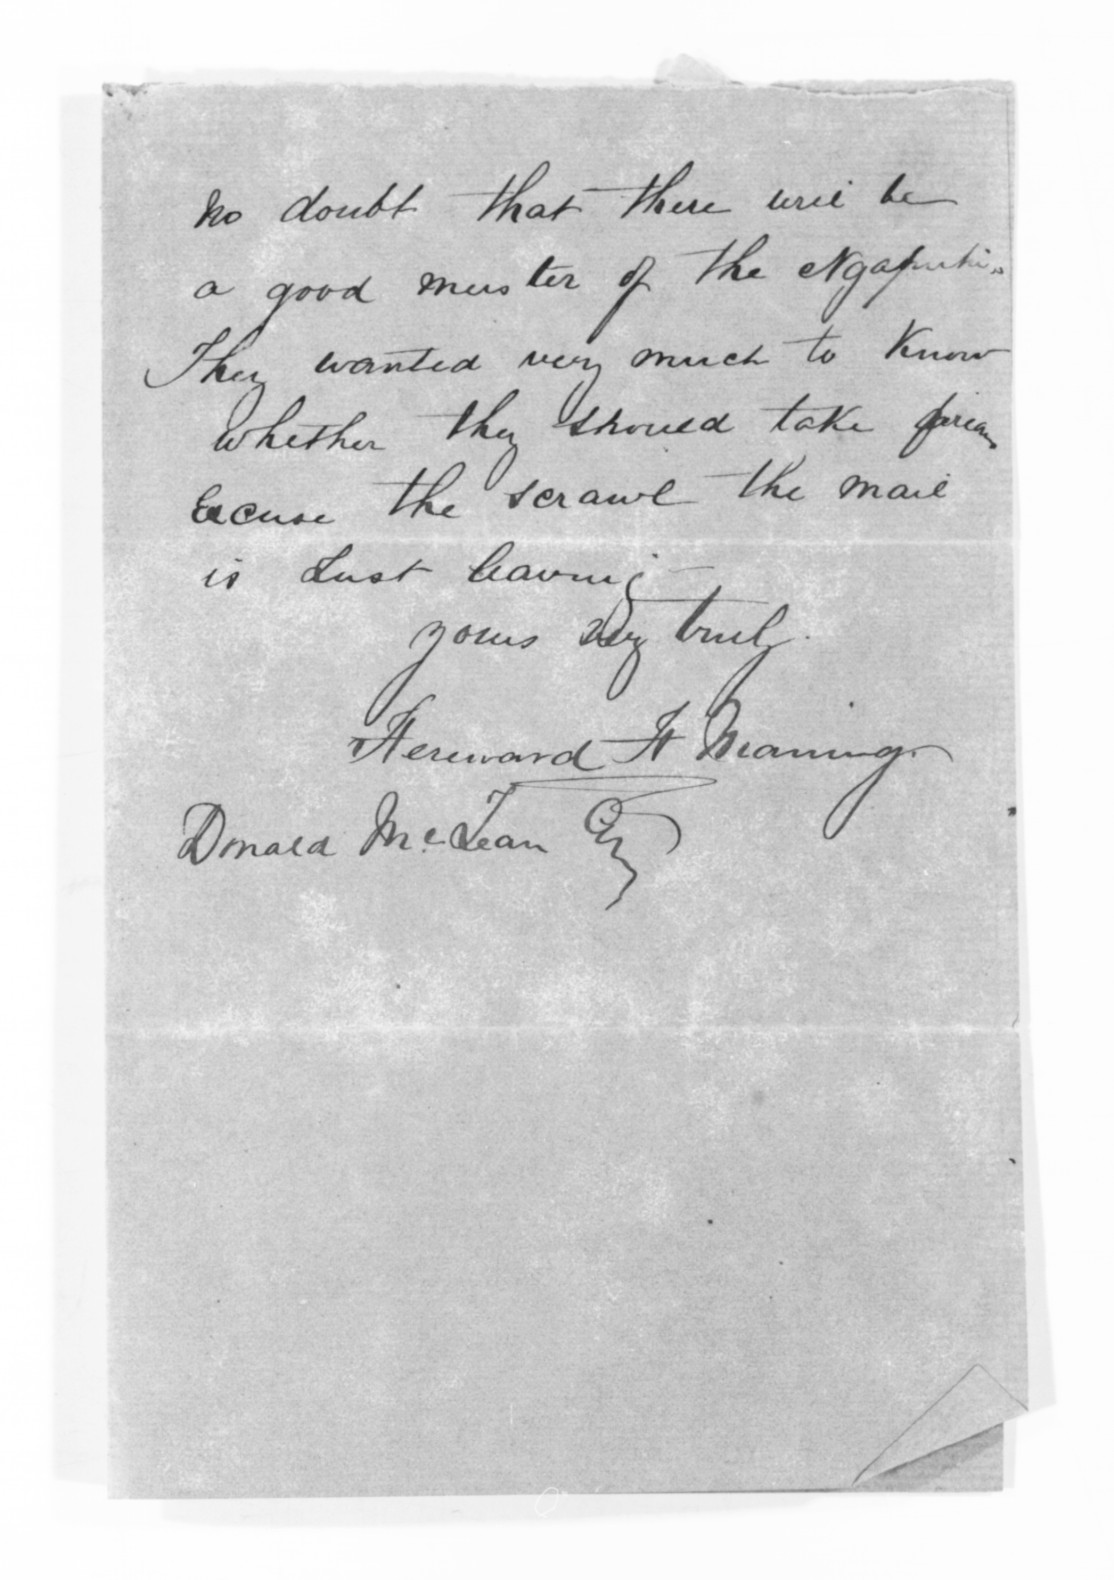 no doubt that there will be
a good muster of the Ngapuhis
They wanted very much to know
whether they should take
Excuse the scrawl the mail
is Just leaving
yours very truly
Hereward H Meaning
Donald McLean Esq